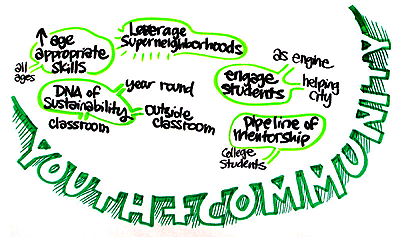 age
appropriate
skills
all
ages
Leverage
Superneighborhoods
DNA of
Sustainability
year round
Outside
classroom
classroom
engage
students
as engine
helping
city
Pipeline of
mentorship
College
Students
YOUTH+COMMUNITY